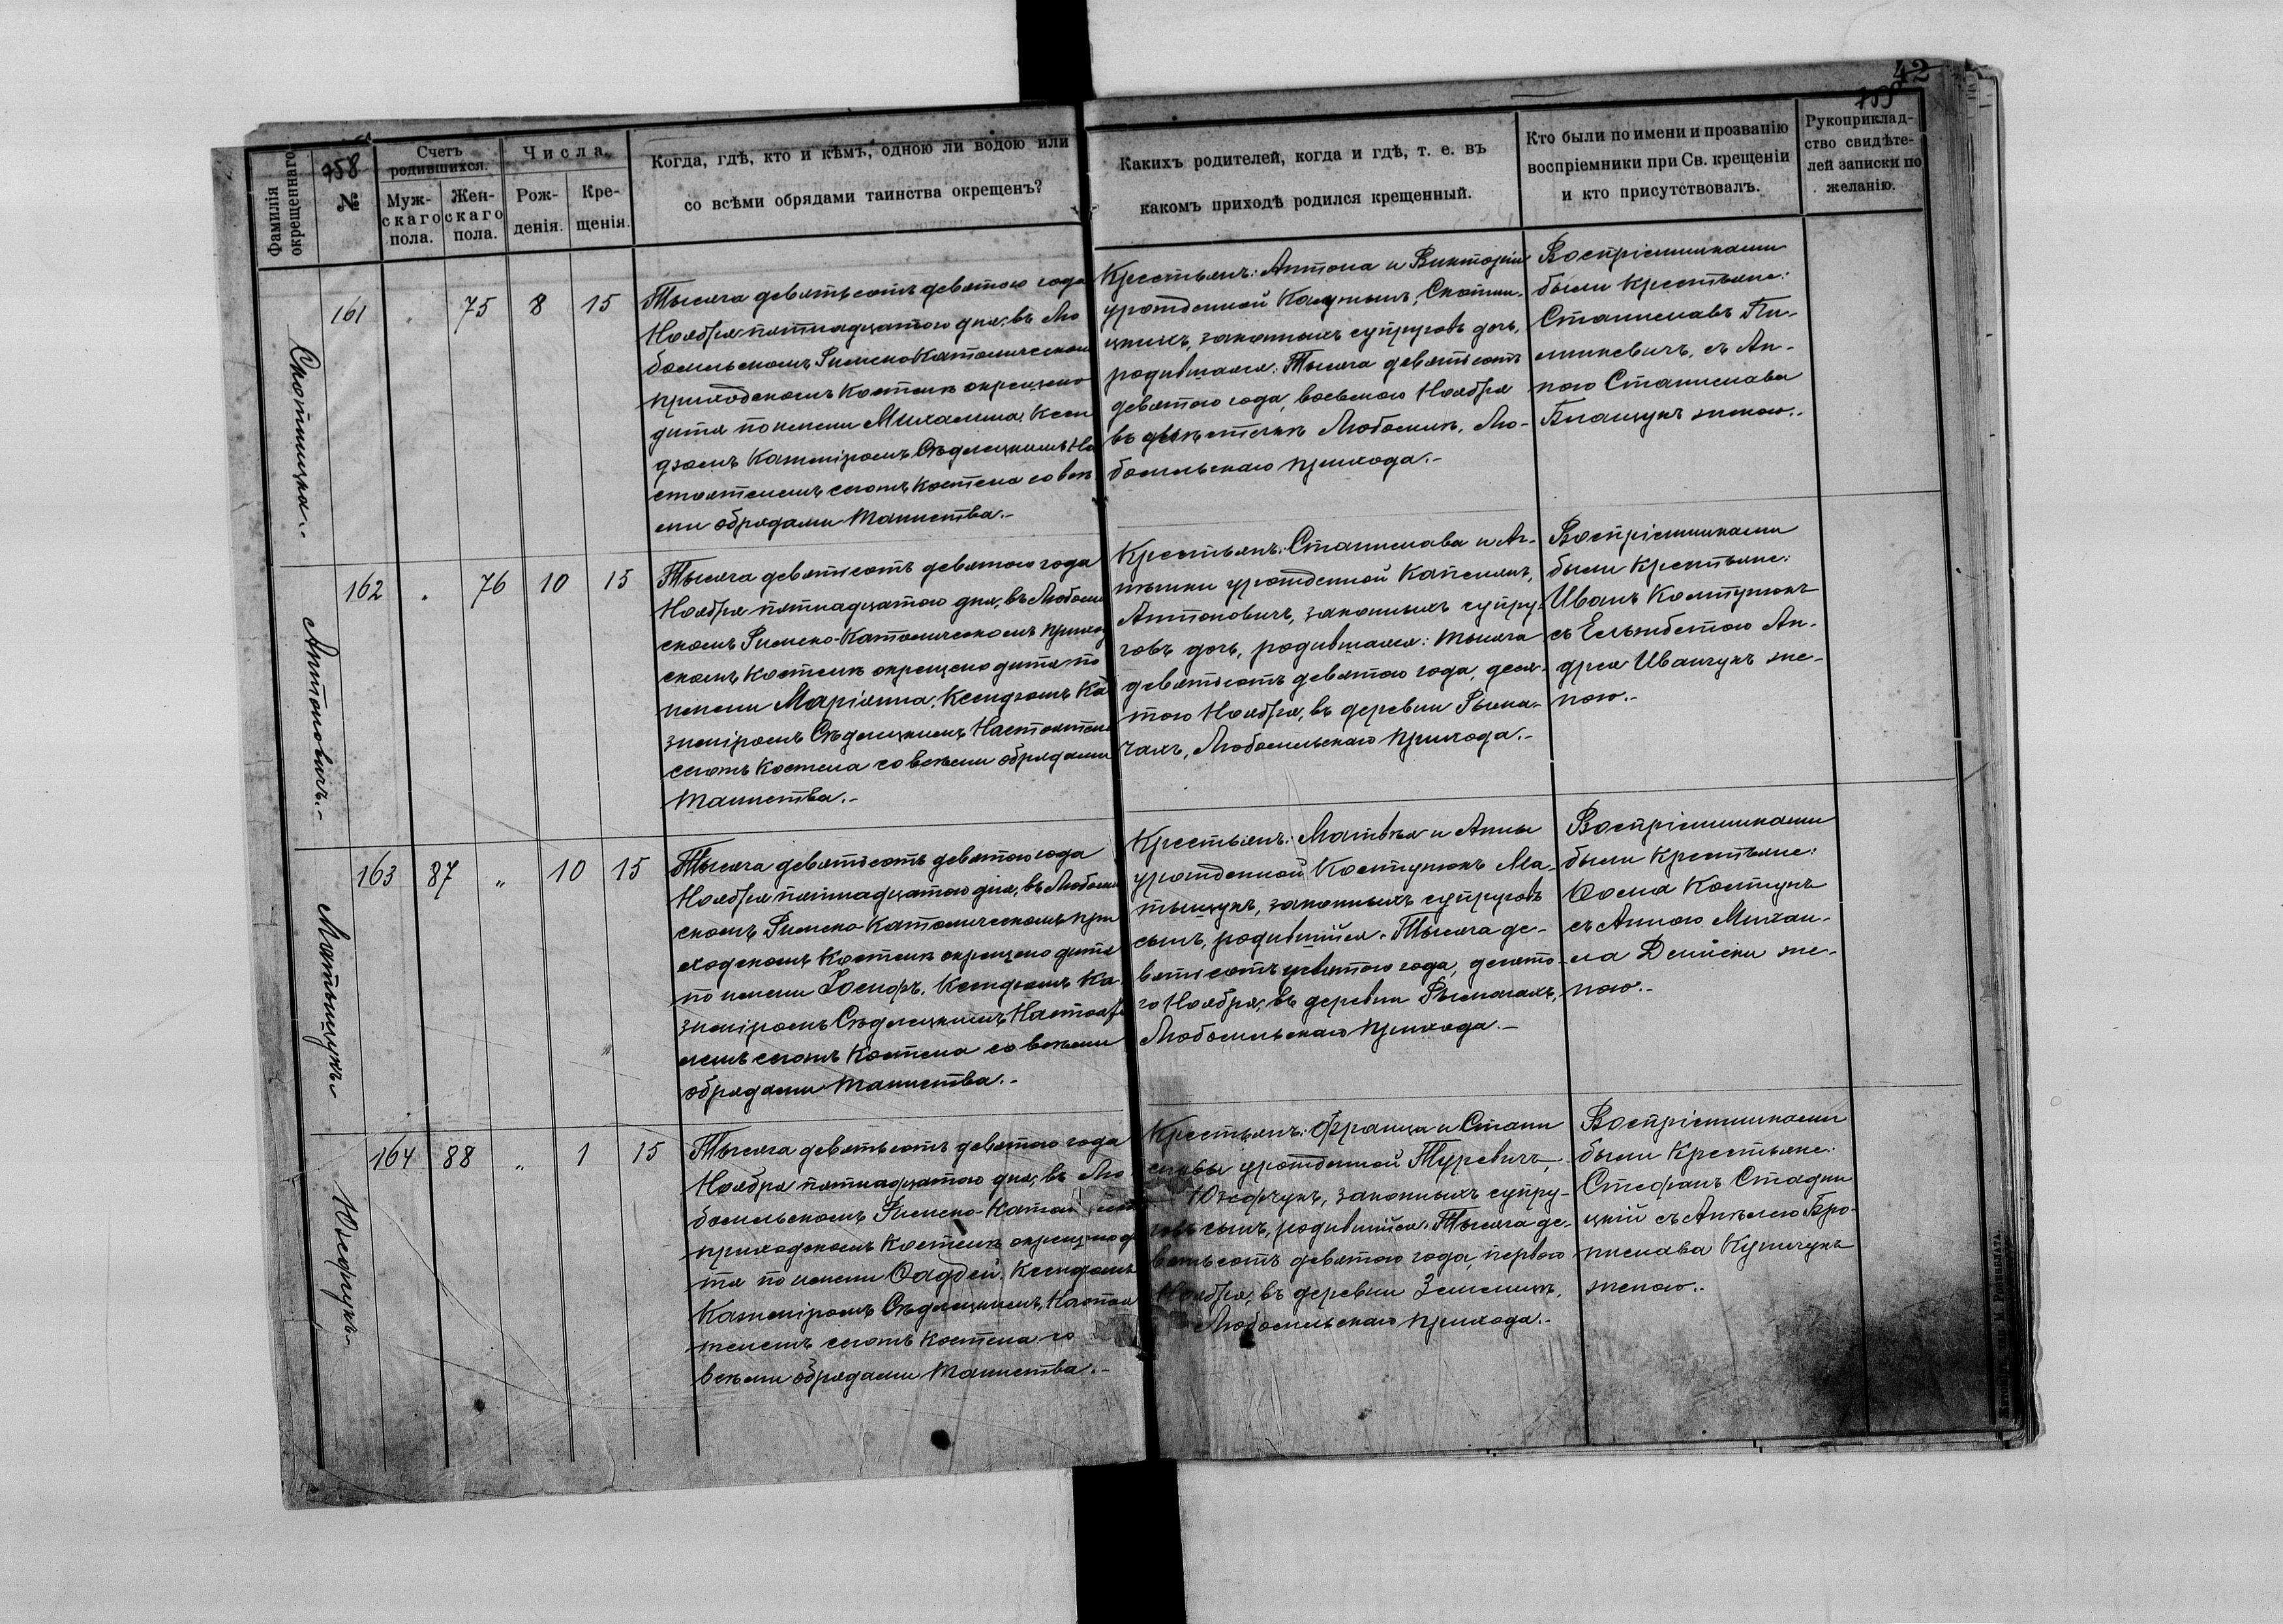 42
759
758
Фамилія окрещеннаго.
№
Счетъ родившихся.
Муж-скаго пола.
Жен-скаго пола.
Числа.
Рож-денія.
Кре-щенія.
Когда, гдѣ, кто и кѣмъ, одною ли водою или
со всѣми обрядами таинства окрещенъ?
Какихъ родителей, когда и гдѣ, т. е. въ
какомъ приходѣ родился крещенный.
Кто были по имени и прозванію
воспріемники при Св. крещеніи
и кто присутствовалъ.
Рукоприклад-
ство свидѣте-
лей записки по
желанію.
Скотницка.-
161 75 8 15
Тысяча девятьсотъ девятого года
Ноября пятнадцатого дня, въ Лю
бомльскомъ Римско Католическомъ
приходскомъ Костелѣ окрещено
дитя по имени Михалина, Ксен
дзомъ Казиміромъ Сѣдлецкимъ На
стоятелемъ сегожъ Костела со всѣ
ми обрядами Таинства.-
Крестьянъ: Антона и Викторіи
урожденной Скотни-
цкихъ, законныхъ супруговъ дочь,
родившаяся: Тысяча девятьсотъ
девятого года, восьмого Ноября
въ мѣстечкѣ Любомлѣ, Лю-
бомльскаго прихода.-
Воспріемниками
были Крестьяне:
Станиславъ Пи-
линкевичъ, съ Ан-
ною Станислава
Блащукъ женою.-
Антоновичъ.-
162 . 76 10 15
Тысяча девятьсотъ девятого года
Ноября пятнадцатого дня, въ Любомль
скомъ Римско-Католическомъ приход
скомъ Костелѣ окрещено дитя по
имени Маріянна, Ксендзомъ Ка
зиміромъ Сѣдлецкимъ Настоятеле
сегожъ Костела со всѣми обрядами
Таинства.-
Крестьянъ: Станислава и Ан-
тонины урожденной
Антоновичъ, законныхъ супру-
говъ дочь, родившаяся: Тысяча
девятьсотъ девятого года, деся-
того Ноября, въ деревни Рыма-
чахъ, Любомльскаго прихода.-
Воспріемниками
были Крестьяне:
Иванъ Колтунюкъ
съ Ельжбетою Ан-
дрея Иванчукъ же-
ною.-
Матыщукъ
163 87 „ 10 15
Тысяча девятьсотъ девятого года
Ноября пятнадцатого дня, въ Любомль
скомъ Римско-Католическомъ при
ходскомъ Костелѣ окрещено дитя
по имени Іосифъ, Ксендзомъ Ка
зиміромъ Сѣдлецкимъ Настояте
лемъ сегожъ Костела со всѣми
обрядами Таинства.-
Крестьянъ: Матвѣя и Анны
урожденной Костунюкъ Ма-
тыщукъ, законныхъ супруговъ
сынъ, родившійся: Тысяча де-
вятьсотъ девятого года, десято-
го Ноября, въ деревни Рымачахъ,
Любомльскаго прихода.-
Воспріемниками
были Крестьяне:
Ѳома Костунъ
съ Анною Михаи-
ла женою.-
Юзефчукъ
164 88 „ 1 15
Тысяча девятьсотъ девятого года
Ноября пятнадцатого дня, въ Лю
бомльскомъ Римско-Катол
приходскомъ Костелѣ окрещено ди
тя по имени Ѳаддей, Ксендзомъ
Казиміромъ Сѣдлецкимъ, Настоя
телемъ сегожъ Костела со
всѣми обрядами Таинства.-
Крестьянъ: Франца и Стани
славы урожденной Туревичъ,
Юзефчукъ, законныхъ супру-
говъ сынъ, родившійся: Тысяча де-
вятьсотъ девятого года, первого
Ноября, въ деревни
Любомльскаго прихода.-
Воспріемниками
были Крестьяне:
Стефанъ Стадни
цкій съ Анѣлею Бро-
нислава Купчукъ
женою.-